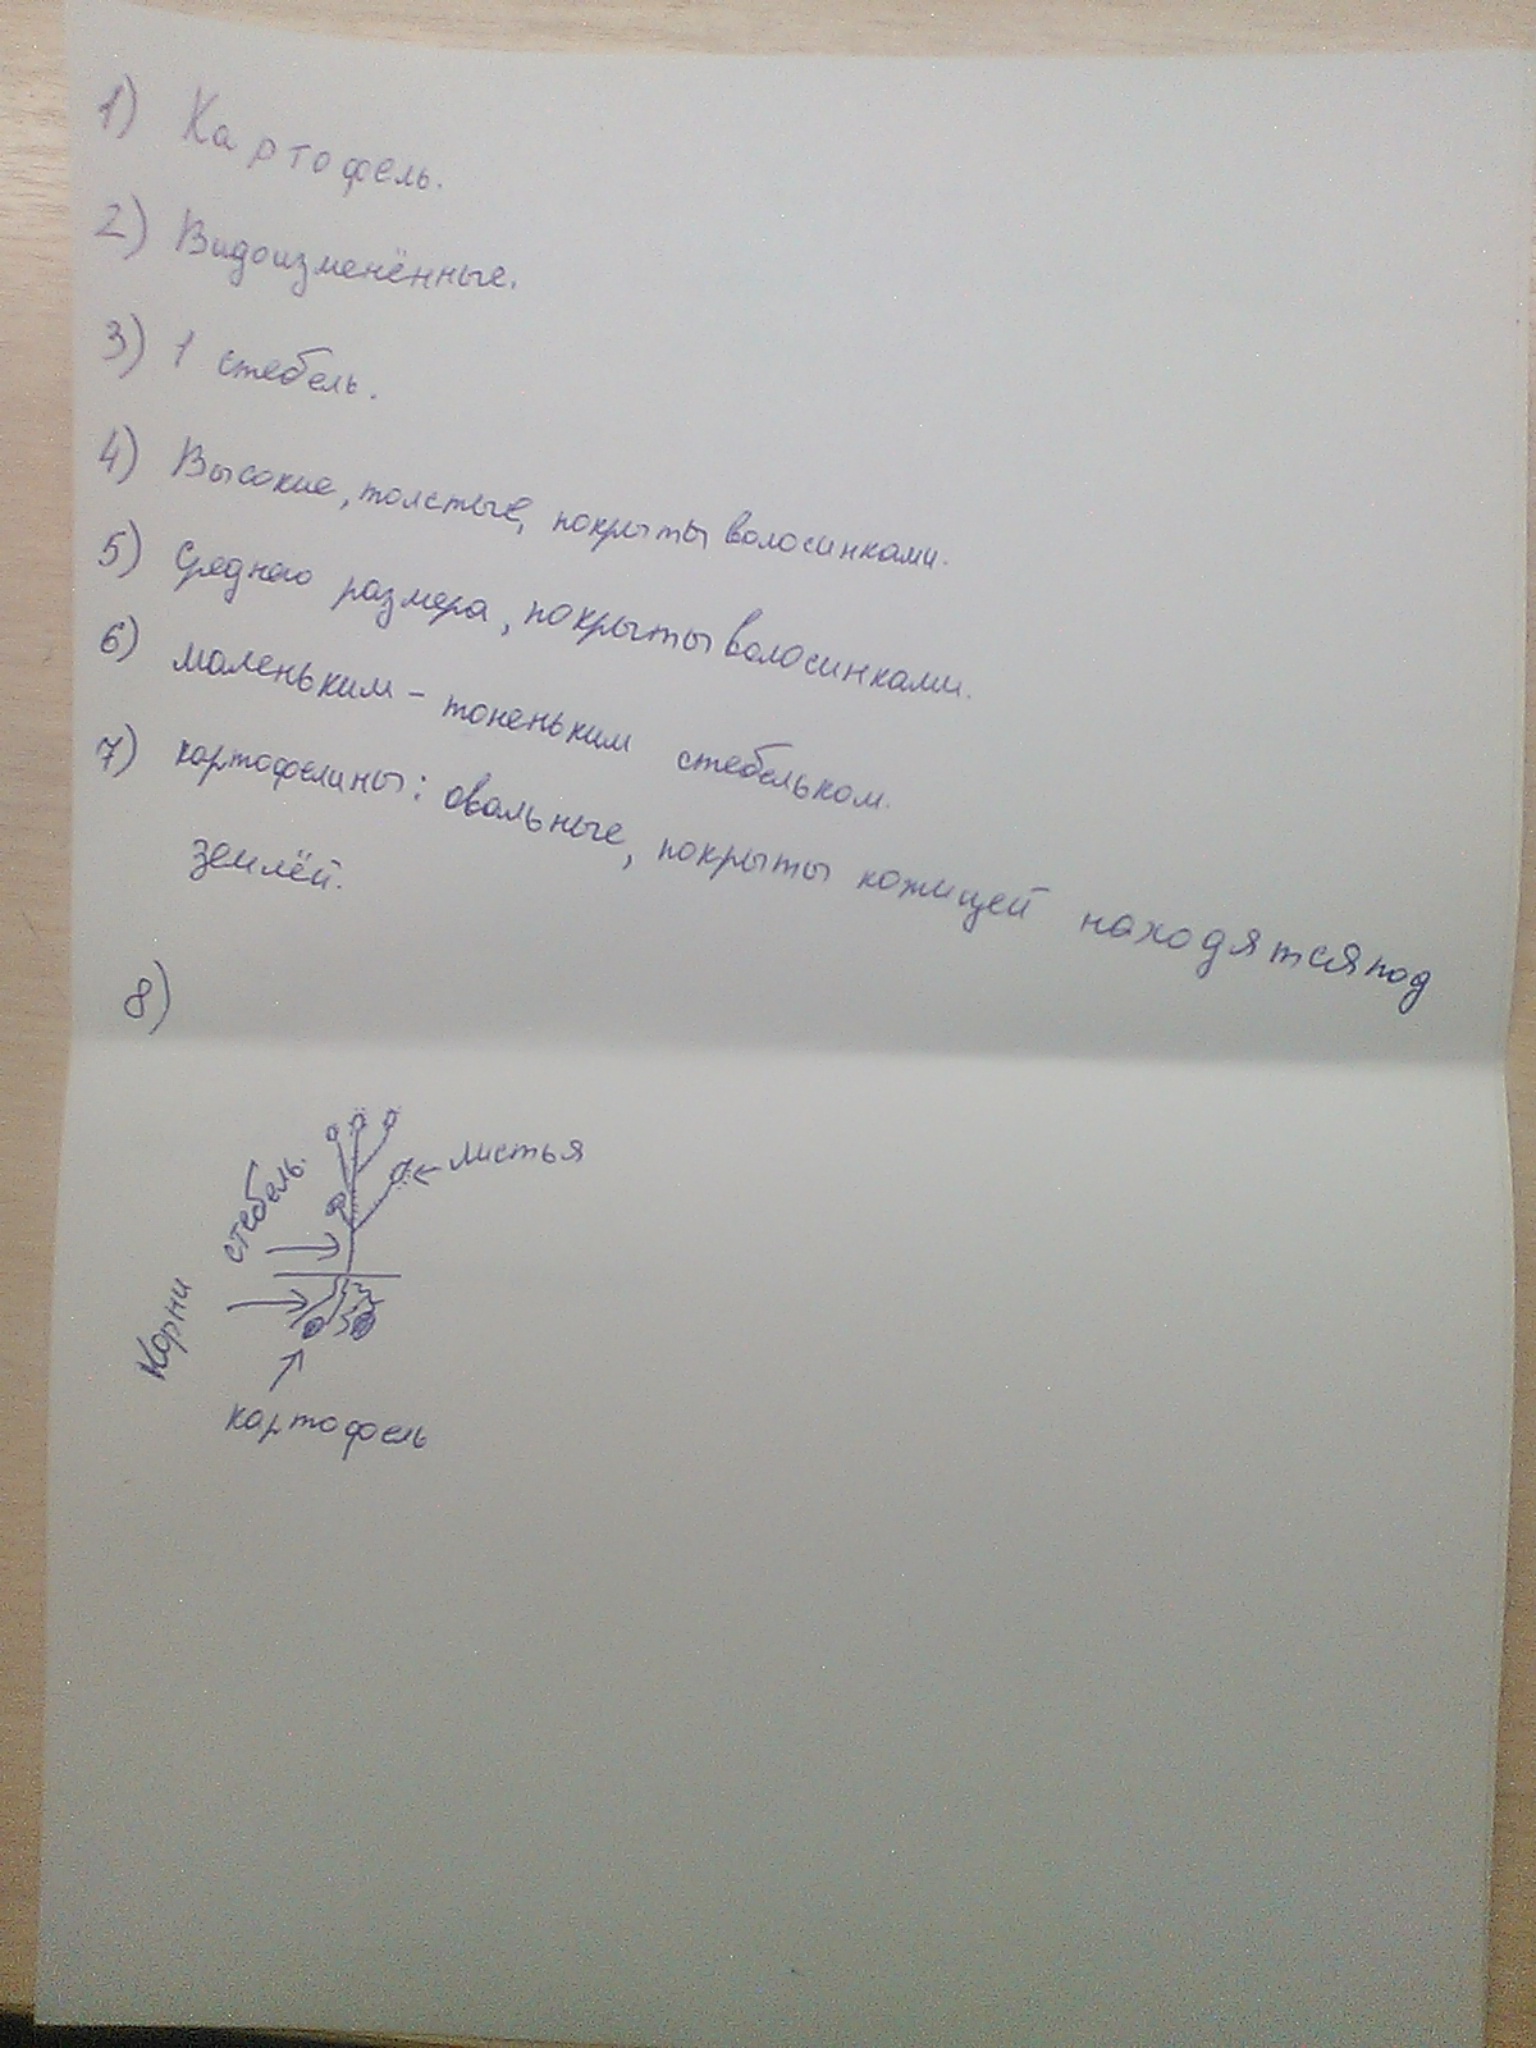 1) Картофель.
2) Видоизменённые.
3) 1 стебель.
4) Высокие, толстые, покрыты волосинками.
5) Среднего размера, покрыты волосинками.
6) маленьким - тоненьким стебельком.
7) картофелины: овальные, покрыты кожицей находятся под
землёй.
8)
листья
стебель.
Корни
картофель